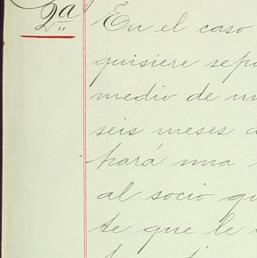 2a
En el caso
quisiere sepa
medio de un
seis meses a
hará una
al socio qu
te que le